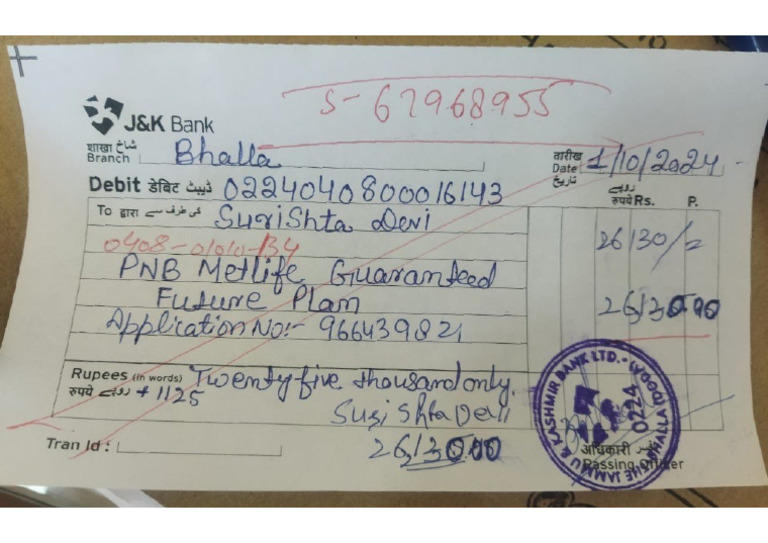 S-67968955
J&K Bank
शाखा شاخ
Branch Bhalla
तारीख
Date 1/10/2024
تاریخ
Debit डेबिट ڈیبٹ 0224040800016143
روپے
रुपये Rs. P.
To द्वारा کی طرف سے Surishta Devi
26130/=
0408-01010-134
PNB Metlife Guaranteed
Future Plan
26130.00
Application No:- 966439821
Rupees (in words) Twenty five thousand only.
रुपये روپے + 1125
Surishta Devi
Tran Id :
26130.00
अधिकारी
Passing Officer
THE JAMMU & KASHMIR BANK LTD. BHALLA (DODA)
0224